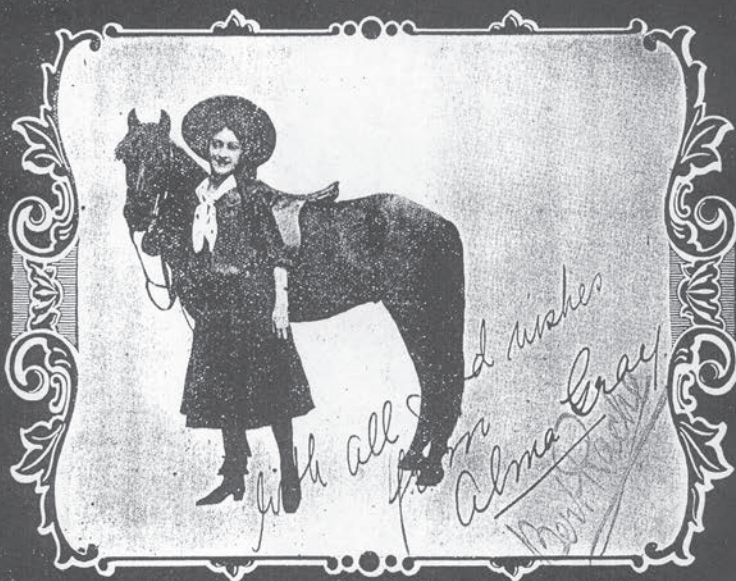 With all good wishes
from
Alma Gray.
Bert